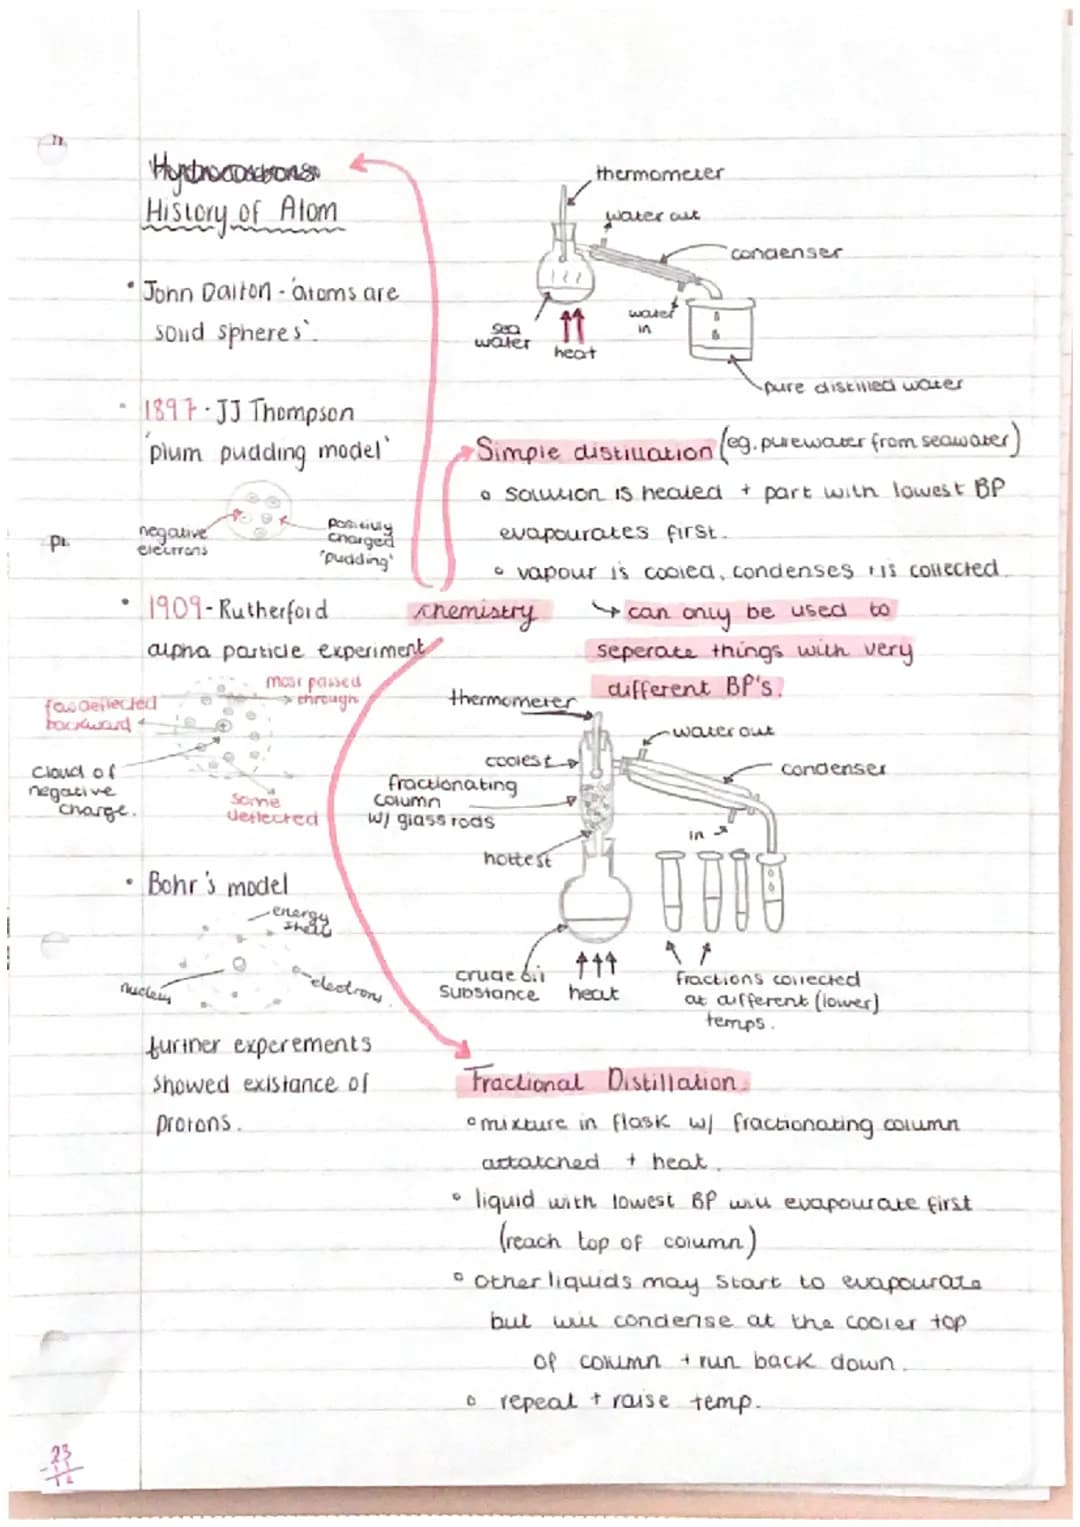 Hydrocarbons
History of Atom
• John Dalton - 'atoms are
solid spheres'.
• 1897 - JJ Thompson
'plum pudding model'
negative
electrons
positivly
charged
'pudding'
Pt.
• 1909 - Rutherford
alpha particle experiment
few deflected
backward
most passed
through
cloud of
negative
charge.
some
deflected
• Bohr's model
energy
shells
nucleus
electrons
further experements
showed existance of
protons.
23
12
chemistry
thermometer
water out
condenser
sea
water
heat
water
in
pure distilled water
Simple distillation (eg. pure water from seawater)
• solution is heated + part with lowest BP
evapourates first.
• vapour is cooled, condenses + is collected
↳ can only be used to
seperate things with very
different BP's.
thermometer
water out
coolest
condenser
fractionating
column
w/ glass rods
in
hottest
crude oil
substance
heat
fractions collected
at different (lower)
temps.
Fractional Distillation.
• mixture in flask w/ fractionating column
attatched + heat.
• liquid with lowest BP will evapourate first
(reach top of column)
• other liquids may start to evapourate
but will condense at the cooler top
of column + run back down.
• repeat + raise temp.